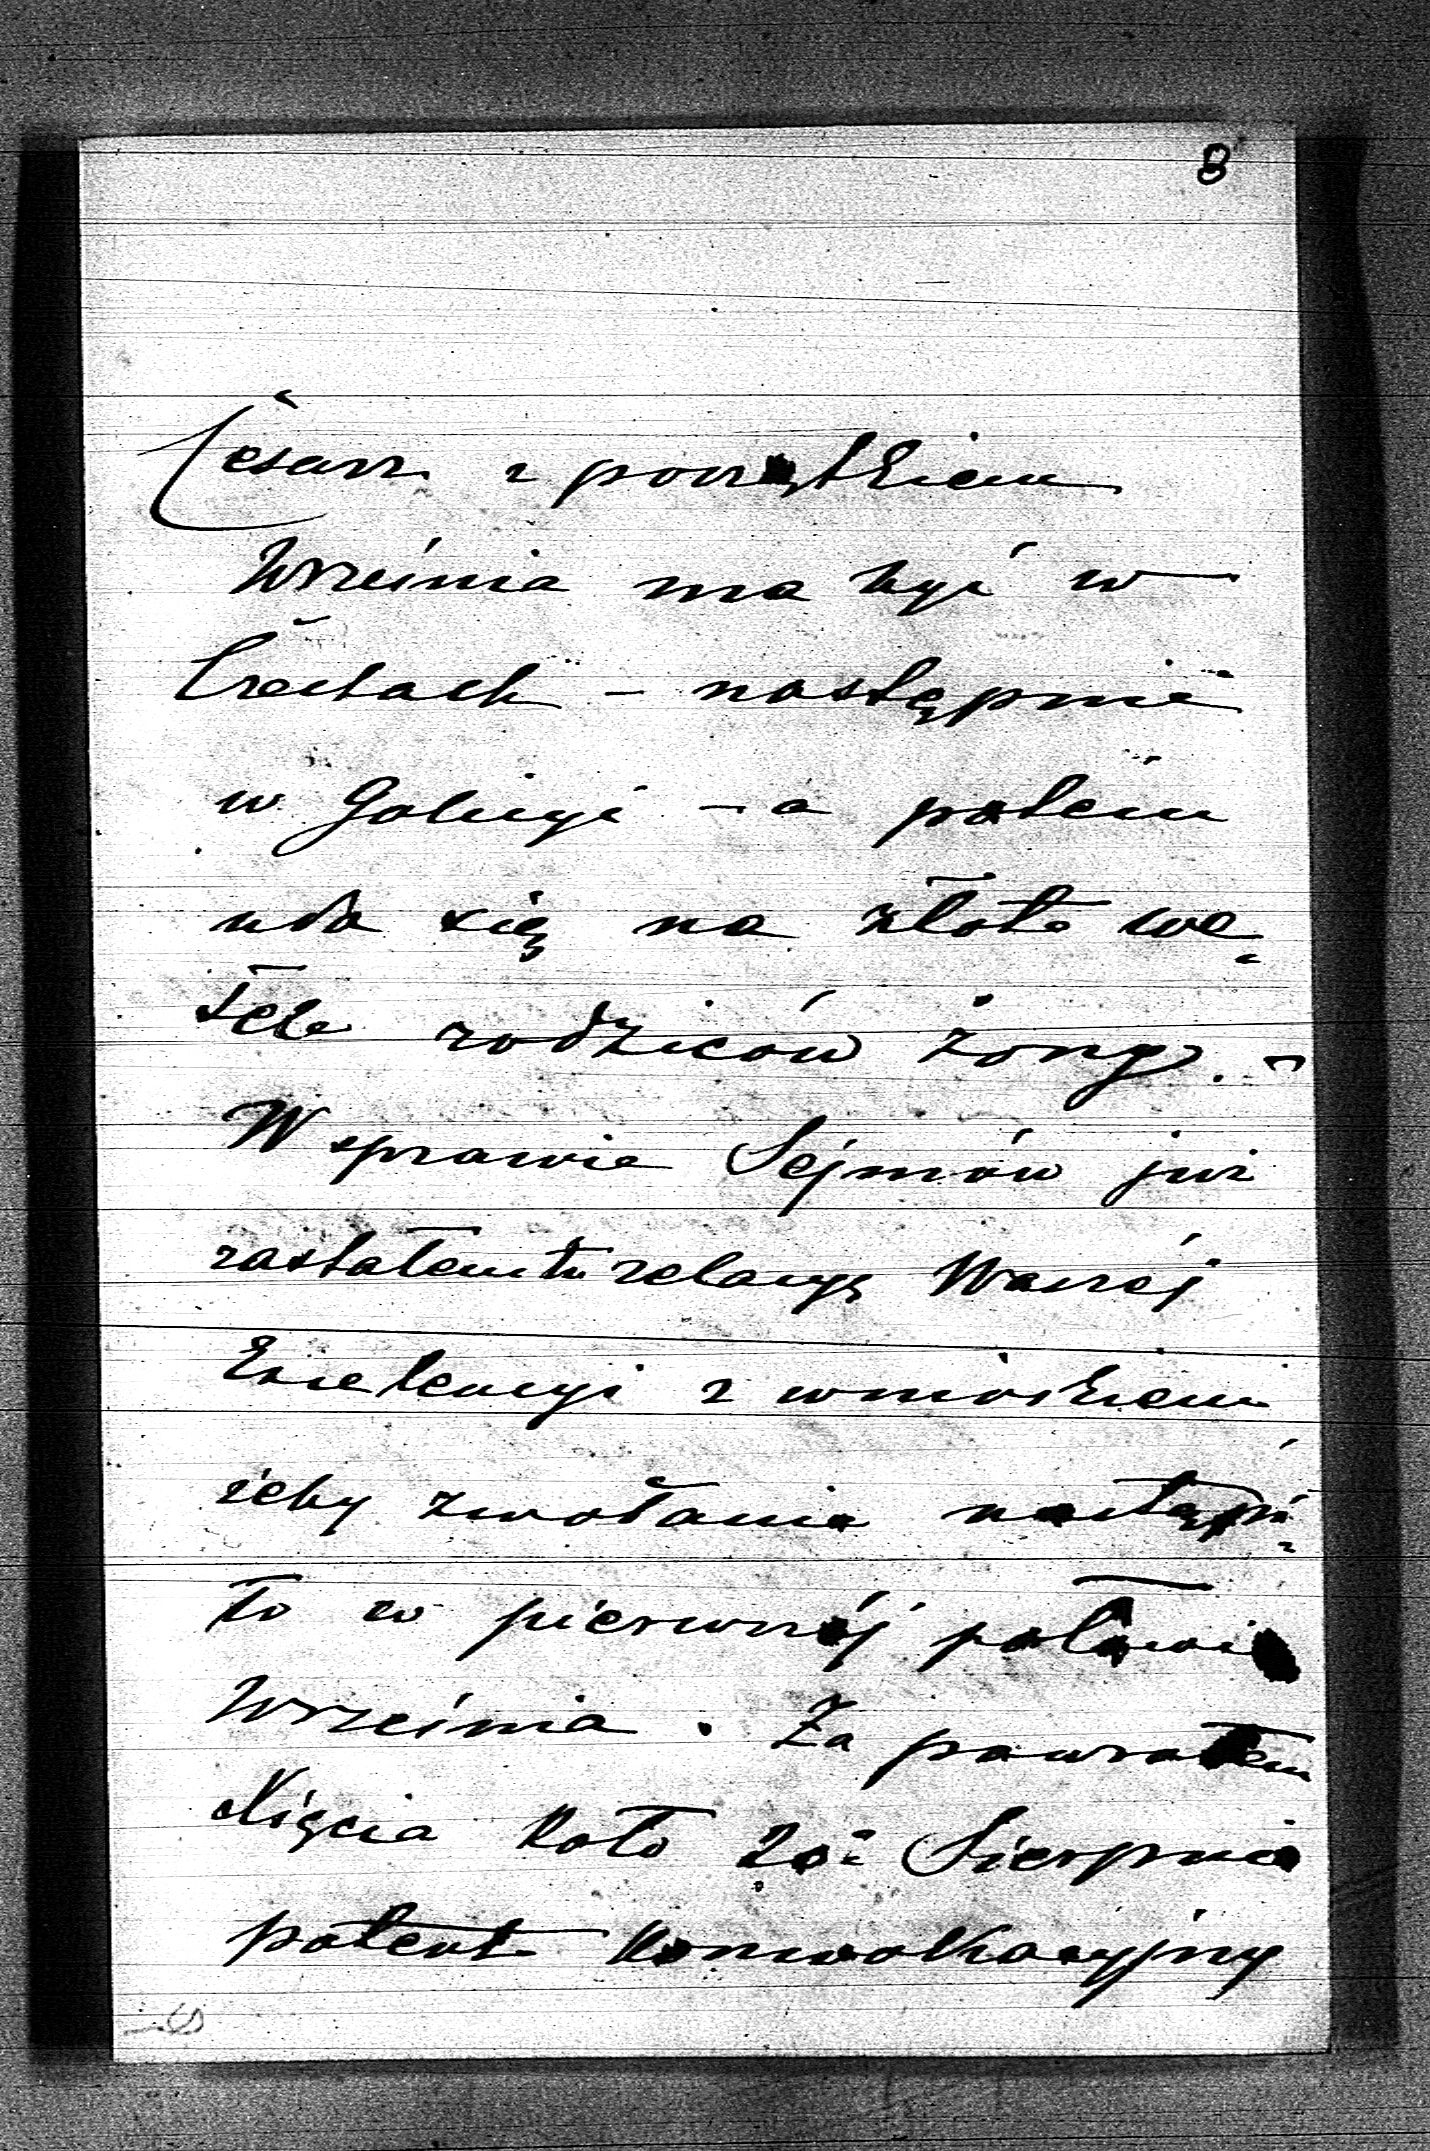 8
Cesarz z początkiem
Września ma być w
Czechach – następnie
w Galicyi – a potém
uda się na złote we-
sele rodziców żony. –
W sprawie Sejmów już
zastałem tu relacyę Waszéj
Excelencyi z wnioskiem
żeby zwołanie nastąpi-
ło w pierwszéj połowie
Września. Za powrotem
Xięcia koło 20: Sierpnia
patent konwokacyjny